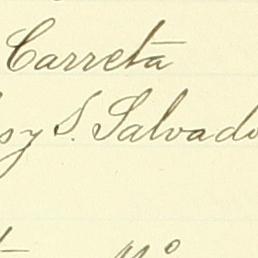 Carreta
sy S. Salvado
Mº